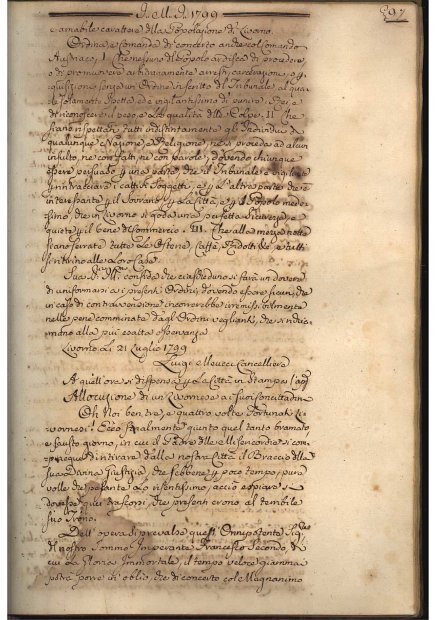 A. M. D. 1799
97
e amabile carattere della Popolazione di Livorno.
Ordina, e comanda di concerto anche col Comando
Austriaco, I. Che nessuno del Popolo ardisca di procedere,
o di promuovere arbitrariamente arresti, carcerazioni, e
senza un Ordine in scritto del Tribunale, al quale
solamente spetta, ed è vigilantissimo di punire i Rei, e
di riconoscere il peso, e la qualità delle Colpe. II. Che
siano rispettati tutti indistintamente gli Individui di
qualunque Nazione, e Religione, nè si proceda ad alcun
insulto, nè con fatti, nè con parole, dovendo chiunque
essere persuaso, che una parte, che il Tribunale è vigilante
per rintracciare i cattivi Soggetti, e per l'altra parte che è
interessante per il Sovrano, per la Città, e per il Popolo mede-
simo, che in Livorno si goda una perfetta sicurezza, e
quiete per il bene del Commercio. III. Che alla mezza notte
siano serrate tutte le Osterie, Caffè, Ridotti &c. e tutti
si ritirino alle loro Case.
confida, che ciascheduno si farà un dovere
di uniformarsi ai presenti Ordini, dovendo essere sicuri, che
in caso di contravvenzione incorrerebbe irremissibilmente
nelle pene comminate dagli Ordini veglianti, che si richia-
mano alla più esatta osservanza.
Livorno Li 21 Luglio 1799
Luigi Meucci Cancelliere
A quest'ora si dispensa per la Città in stampa l'
Allocuzione di un Livornese a' suoi Concittadini
Oh Noi ben tre, e quattro volte Fortunati Li-
vornesi! Ecco finalmente giunto quel tanto bramato
e fausto giorno, in cui il Padre delle Misericordie si com-
piacque di ritirare dalla nostra Città il Braccio della
sua Divina Giustizia, che sebbene per poco tempo, pure
volle che pesante lo risentissimo, acciò espiare si
dovesse i trascorsi, che presenti erono al terribile
suo Trono.
Dell'opera si prevalse quest'Onnipotente Sig.re
del nostro Sommo Imperante Francesco Secondo, di
cui la Gloria Immortale, il tempo velore giammai
potrà porre in oblio, che di concerto col Magnanimo